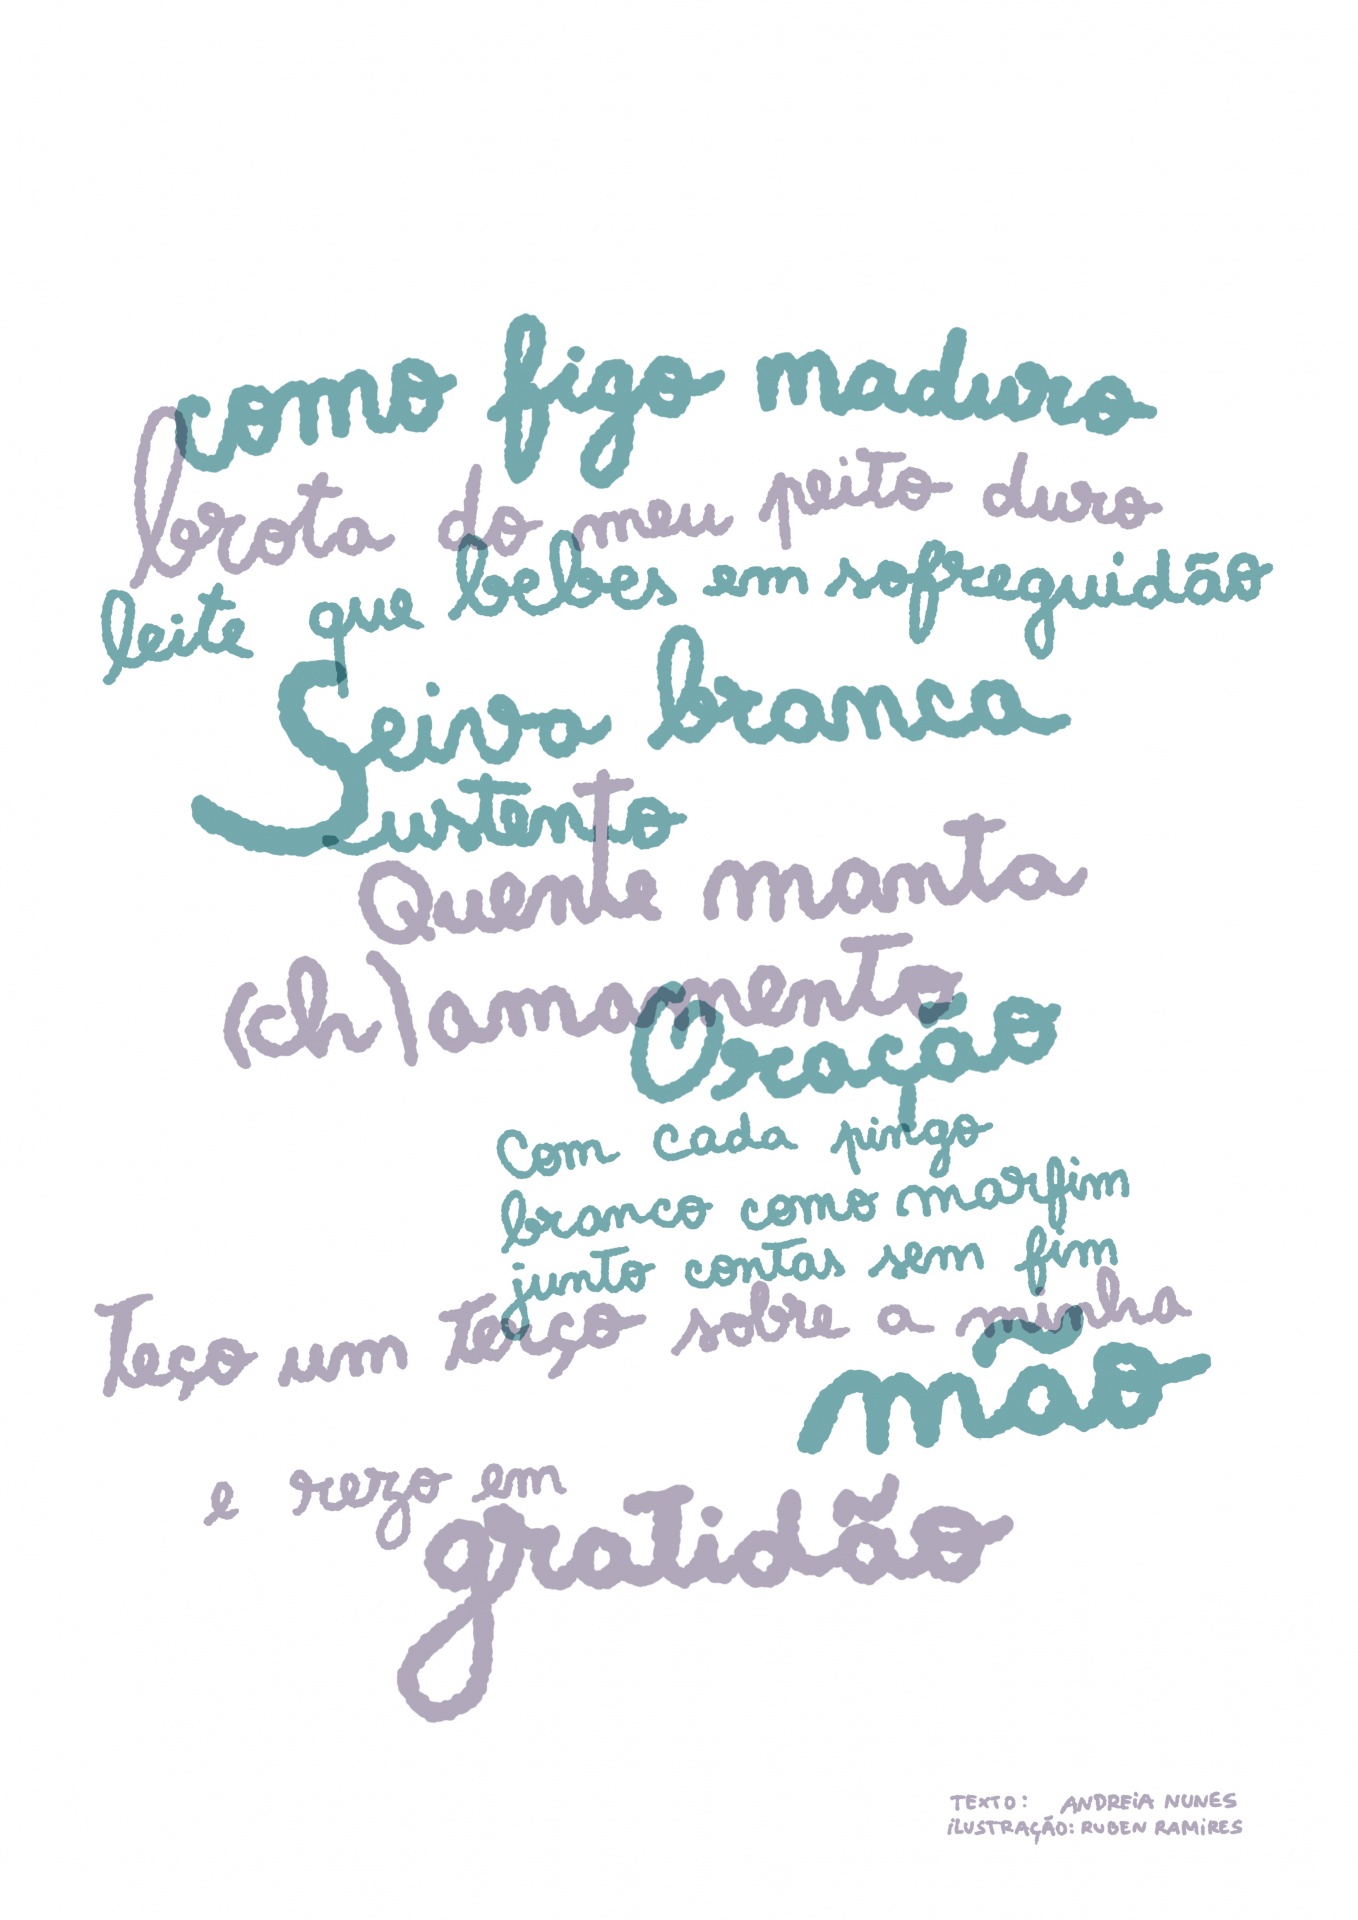 como figo maduro
brota do meu peito duro
leite que bebes em sofreguidão
Seiva branca
Sustento
Quente manta
(ch)amamento
Oração
Com cada pingo
branco como marfim
junto contas sem fim
Teço um terço sobre a minha
mão
e rezo em
gratidão
TEXTO: ANDREIA NUNES
ILUSTRAÇÃO: RUBEN RAMIRES